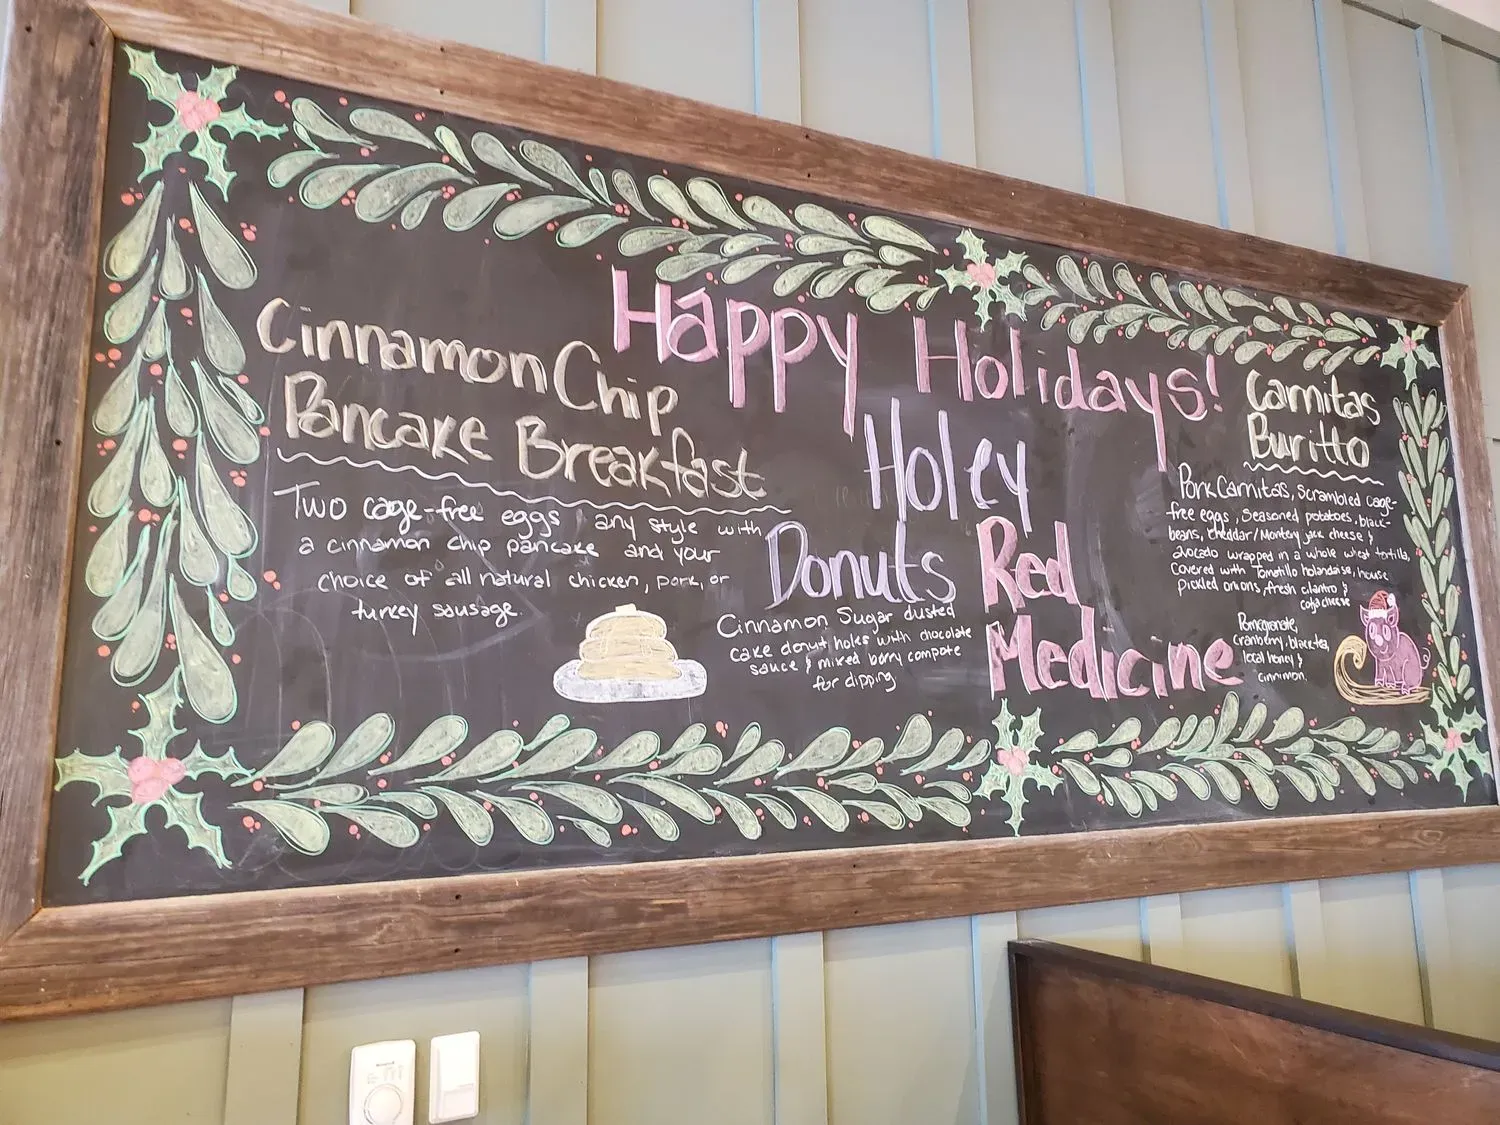 Happy Holidays!
Cinnamon Chip
Pancake Breakfast
Two cage-free eggs any style with
a cinnamon chip pancake and your
choice of all natural chicken, pork, or
turkey sausage.
Holey
Donuts
Cinnamon Sugar dusted
cake donut holes with chocolate
sauce & mixed berry compote
for dipping
Red
Medicine
Pomegranate,
cranberry, black tea,
local honey &
cinnimon.
Carnitas
Burritto
Pork Carnitas, scrambled cage-
free eggs, seasoned potatoes, black-
beans, cheddar/Montey jack cheese &
avocado wrapped in a whole wheat tortilla,
covered with Tomatillo holandaise, house
pickled onions, fresh cilantro &
cotija cheese